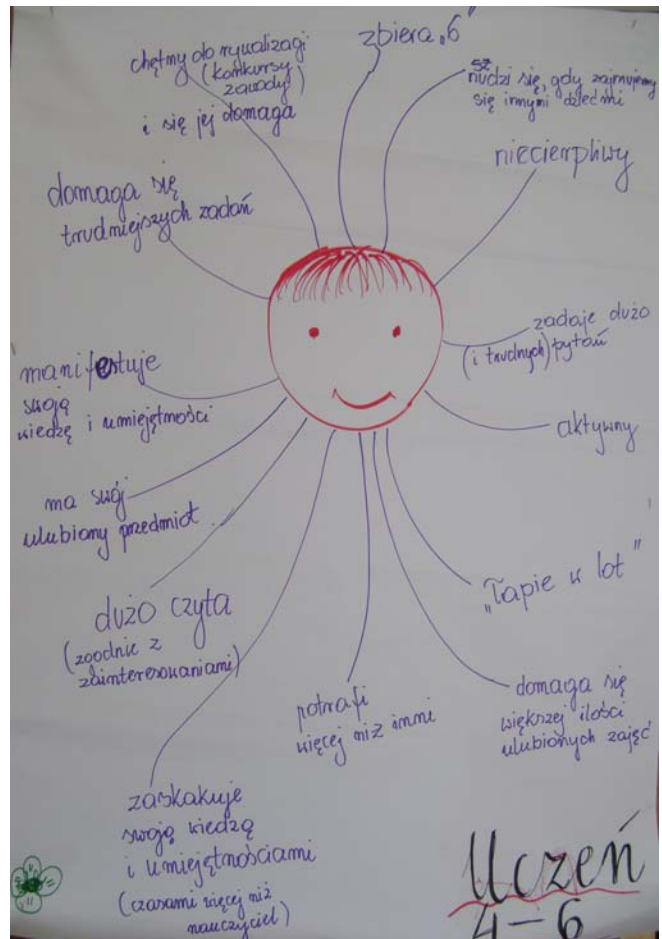 chętny do rywalizacji
(konkursy
zawody)
i się jej domaga
zbiera „6”
nudzi się, gdy zajmujemy
się innymi dziećmi
niecierpliwy
domaga się
trudniejszych zadań
zadaje dużo
(i trudnych) pytań
manifestuje
swoją
wiedzę i umiejętności
aktywny
ma swój
ulubiony przedmiot
„łapie w lot”
dużo czyta
(zgodnie z
zainteresowaniami)
potrafi
więcej niż inni
domaga się
większej ilości
ulubionych zajęć
zaskakuje
swoją wiedzą
i umiejętnościami
(czasami więcej niż
nauczyciel)
Uczeń
4-6